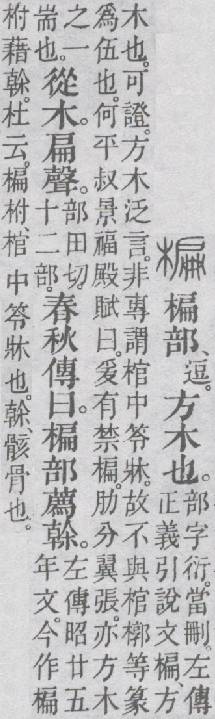 楄 楄部、逗。方木也。部字衍。當刪。左傳
正義引說文楄、方
木也。可證。方木泛言。非專謂棺中笭牀。故不與棺槨等篆
爲伍也。何平叔景福殿賦曰。爰有禁楄。肋分翼張。亦方木
之一
耑也。從木。扁聲。部田切。
十二部。春秋傳曰。楄部薦榦。左傳昭廿五
年文。今作楄
柎藉榦。杜云。楄柎、棺中笭牀也。榦、骸骨也。